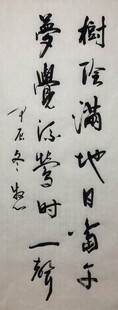 樹陰滿地日當午
夢覺流鶯時一聲
甲辰冬